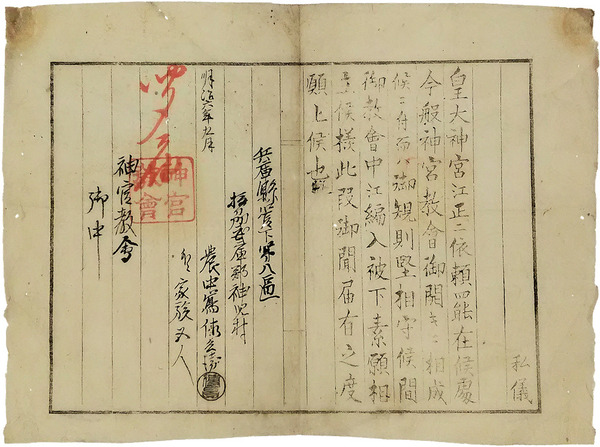 私儀
皇大神宮江正ニ依頼罷在候處
今般神宮教會御開キニ相成
候ニ付而ハ御規則堅相守候間
御教會中江編入被下素願相
候様此段御聞届有之度
願上候也
兵庫縣管下第八區
武庫郡神呪村
農中嶌
家族五人
明治六年九月
神宮教會
御中
神宮
教會